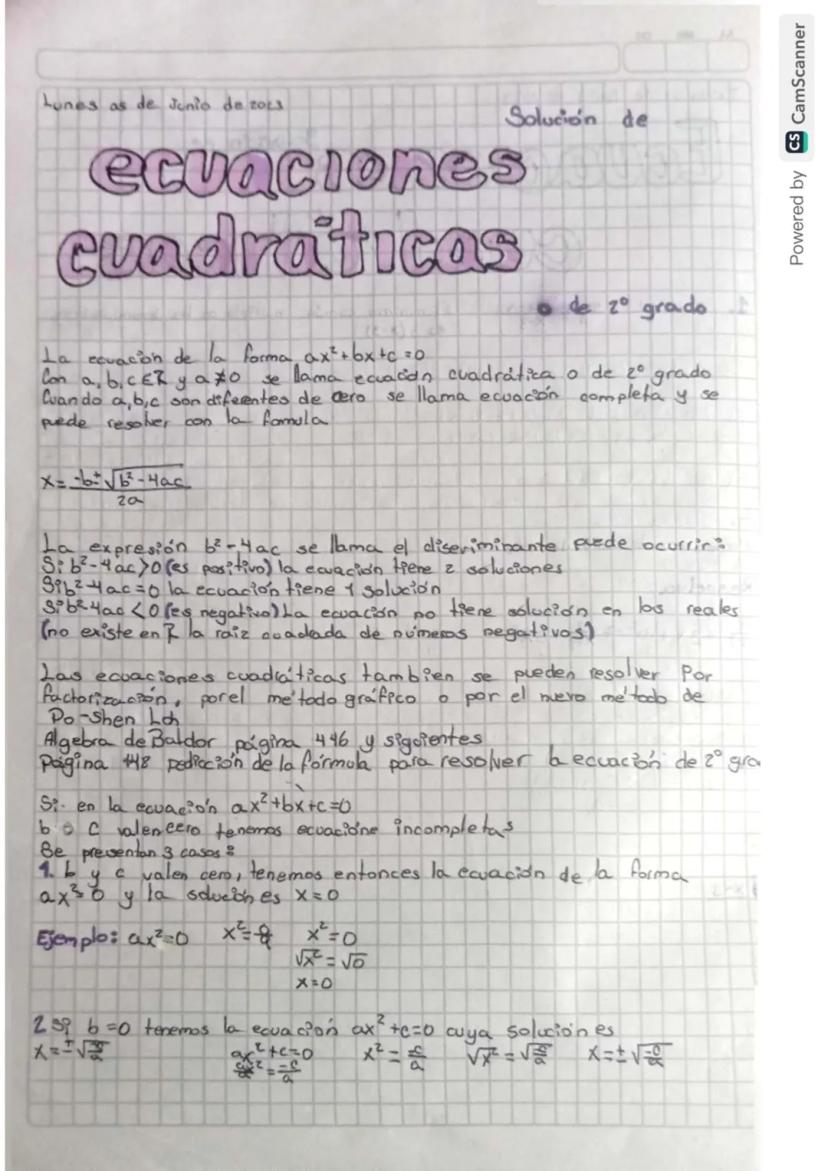 Lunes 05 de Junio de 2023
Solución de
ecuaciones
cuadráticas
o de 2º grado
La ecuación de la forma ax²+bx+c=0
Con a,b,c ∈ R y a≠0 se llama ecuación cuadrática o de 2º grado
Cuando a,b,c son diferentes de cero se llama ecuación completa y se
puede resolver con la fomula
x= -b± √b²-4ac
2a
La expresión b²-4ac se llama el discriminante puede ocurrir:
Si b²-4ac>0 (es positivo) la ecuación tiene 2 soluciones
Si b²-4ac=0 la ecuación tiene 1 solución
Si b²-4ac <0 (es negativo) La ecuación no tiene solución en los reales
(no existe en R la raiz cuadada de números negativos)
Las ecuaciones cuadráticas tambien se pueden resolver Por
factorización, por el método gráfico o por el nuevo método de
Po-Shen Loh
Algebra de Baldor página 446 y siguientes
Página 448 pedicción de la fórmula para resolver la ecuación de 2º gra
Si en la ecuación ax²+bx+c=0
b o c valen cero tenemos ecuacione incompletas
Se presentan 3 casos:
1. b y c valen cero, tenemos entonces la ecuación de la forma
ax²=0 y la solución es x=0
Ejemplo: ax²=0 x²=0/a x²=0
√x² = √0
x=0
2 Si b=0 tenemos la ecuación ax²+c=0 cuya solución es
x=±√-c/a ax²+c=0 x²=-c/a √x²=√-c/a x=±√-c/a
ax²=-c/a
Powered by CS CamScanner